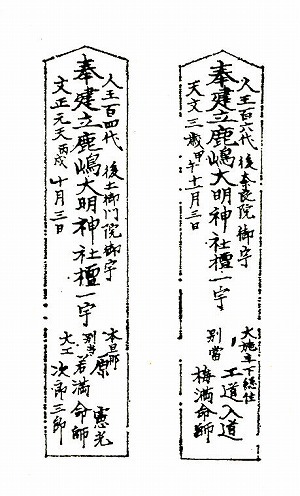 人王百六代 後奈良院御宇
奉建立鹿嶋大明神社檀一宇
天文三歳甲午十一月三日
大施主下総住
工道入道
別當
梅満命師
人王百四代 後土御門院御宇
奉建立鹿嶋大明神社檀一宇
文正元天丙戌十月三日
原 憲光
別当
若満命師
大工 次郎三郎